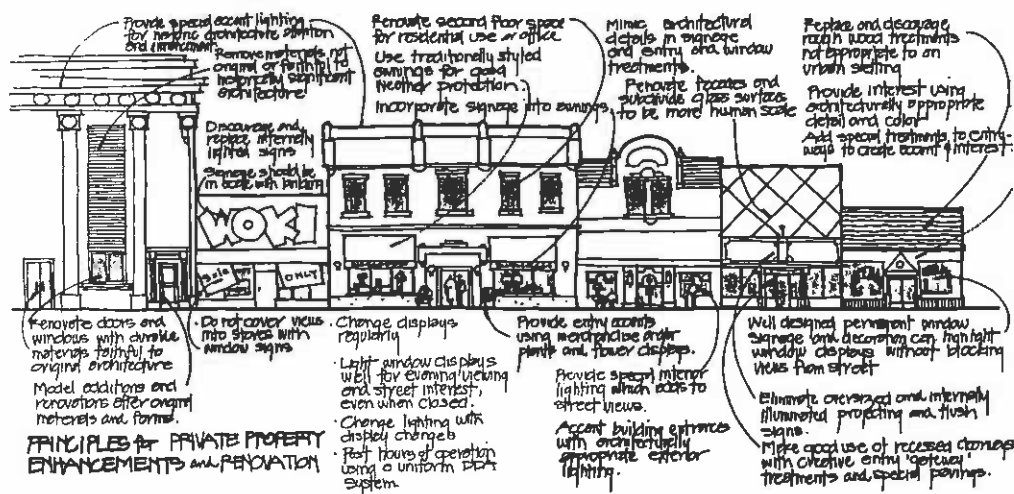 Provide special accent lighting
for historic architecture addition
and environment
Remove materials not
original or faithful to
historically significant
architecture
Discourage and
replace internally
lighted signs
Signage should be
in scale with building
Renovate second floor space
for residential use or office
Use traditionally styled
awnings for good
weather protection.
Incorporate signage into awnings
Mimic architectural
details in signage
and entry and window
treatments.
Renovate facades and
subdivide glass surfaces
to be more human scale
Replace and discourage
rough wood treatments
not appropriate to an
urban setting
Provide interest using
architecturally appropriate
detail and color
Add special treatments to entry-
ways to create accent & interest.
WOK!
Sale
ONLY
Renovate doors and
windows with durable
materials faithful to
original architecture
Model additions and
renovations after original
materials and forms.
• Do not cover views
into stores with
window signs
• Change displays
regularly
• Light window displays
well for evening viewing
and street interest,
even when closed.
• Change lighting with
display changes
• Post hours of operation
using a uniform
system.
Provide entry accents
using merchandise and/or
plants and flower displays.
Provide special interior
lighting which adds to
street views.
Accent building entrances
with architecturally
appropriate exterior
lighting.
Well designed permanent window
signage and decoration can highlight
window displays without blocking
views from street
Eliminate oversized and internally
illuminated projecting and flush
signs.
Make good use of recessed doorways
with creative entry 'gateway'
treatments and special pavings.
PRINCIPLES for PRIVATE PROPERTY
ENHANCEMENTS and RENOVATION